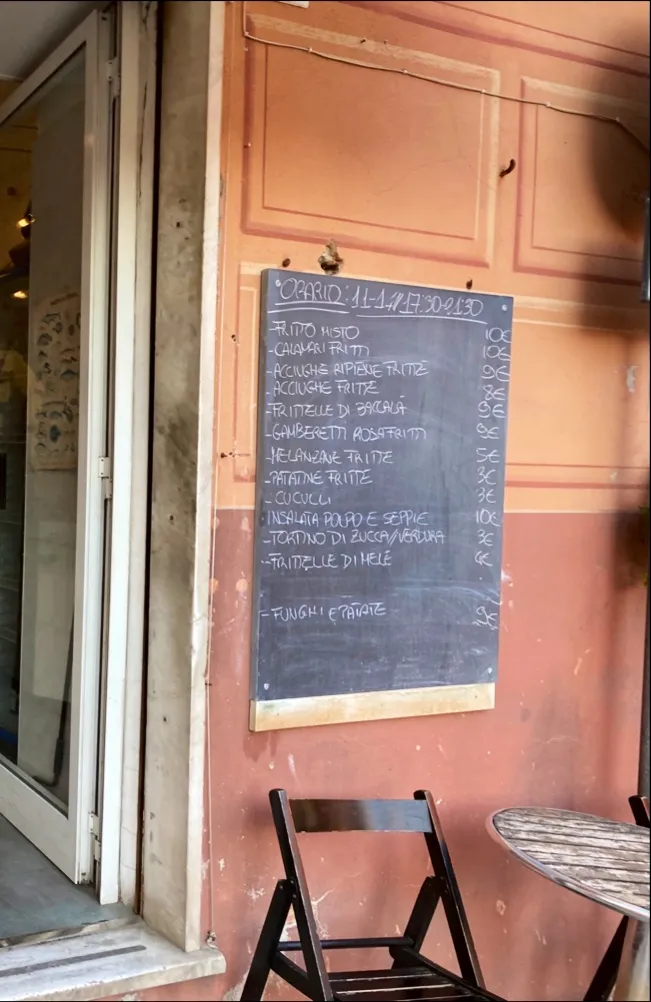 ORARIO: 11-14/17:30-21:30
-FRITTO MISTO 10€
-CALAMARI FRITTI 10€
-ACCIUGHE RIPIENE FRITTE 9€
-ACCIUGHE FRITTE 8€
-FRITTELLE DI BACCALÀ 9€
-GAMBERETTI ROSA FRITTI 9€
-MELANZANE FRITTE 5€
-PATATINE FRITTE 3€
-CUCULLI 3€
INSALATA POLPO E SEPPIE 10€
-TORTINO DI ZUCCA/VERDURA 3€
-FRITTELLE DI MELE €
-FUNGHI E PATATE 9€